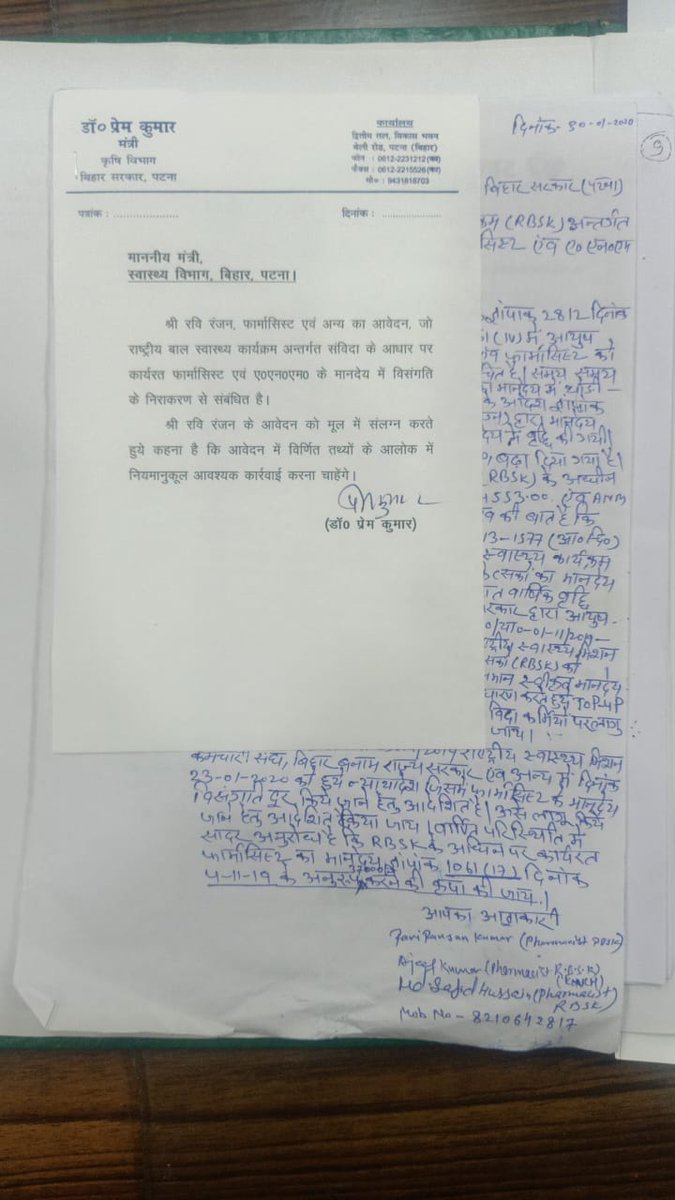 डॉ० प्रेम कुमार
मंत्री
कृषि विभाग
बिहार सरकार, पटना
कार्यालय
द्वितीय तल, विकास भवन
बेली रोड, पटना (बिहार)
फोन : 0612-2231212 (का)
फैक्स : 0612-2215526 (का)
मो० : 9431818703
पत्रांक : ....................
दिनांक : ....................
माननीय मंत्री,
स्वास्थ्य विभाग, बिहार, पटना।
श्री रवि रंजन, फार्मासिस्ट एवं अन्य का आवेदन, जो
राष्ट्रीय बाल स्वास्थ्य कार्यक्रम अन्तर्गत संविदा के आधार पर
कार्यरत फार्मासिस्ट एवं ए०एन०एम० के मानदेय में विसंगति
के निराकरण से संबंधित है।
श्री रवि रंजन के आवेदन को मूल में संलग्न करते
हुये कहना है कि आवेदन में विर्णित तथ्यों के आलोक में
नियमानुकूल आवश्यक कार्रवाई करना चाहेंगे।
(डॉ० प्रेम कुमार)
दिनांक-
9
बिहार सरकार
(RBSK) अन्तर्गत
एंव ए०एन०एम
2812 दिनांक
(IV) में आयुष
फार्मासिस्ट को
समय समय
मानदेय में थोड़ी-
के आदेश ज्ञापांक
द्वारा मानदेय
में वृद्धि की गयी।
बढ़ा दिया गया है।
RBSK) के अधीन
553.00 एंव ANM
की बात है कि
13-1577 (आ०दि०)
स्वास्थ्य कार्यक्रम
का मानदेय
वार्षिक वृद्धि
द्वारा आयुष-
स्वास्थ्य मिशन
(RBSK) को
समान स्वीकृत मानदेय
करते हुए TOP-UP
कर्मियों पर लागु
जाय।
कर्मचारी संघ, बिहार बनाम राज्य सरकार एंव अन्य में दिनांक
23-01-2020 को हुये न्यायादेश जिसमें फार्मासिस्ट के मानदेय
विसंगति दूर किये जाने हेतु आदेशित है। उसे लागू किये
जाने हेतु आदेशित किया जाय। वर्णित परिस्थिति में
सादर अनुरोध है कि RBSK के अधीन पर कार्यरत
फार्मासिस्ट का मानदेय ज्ञापांक 1061(17) दिनांक
5-11-19 के अनुरूप करने की कृपा की जाय।
आपका आज्ञाकारी
Ravi Ranjan Kumar (Pharmacist
Ajay Kumar (Pharmacist R.B.S.K)
Md Sajid Hussain (Pharmacist)
RBSK)
Mob No - 8210642817